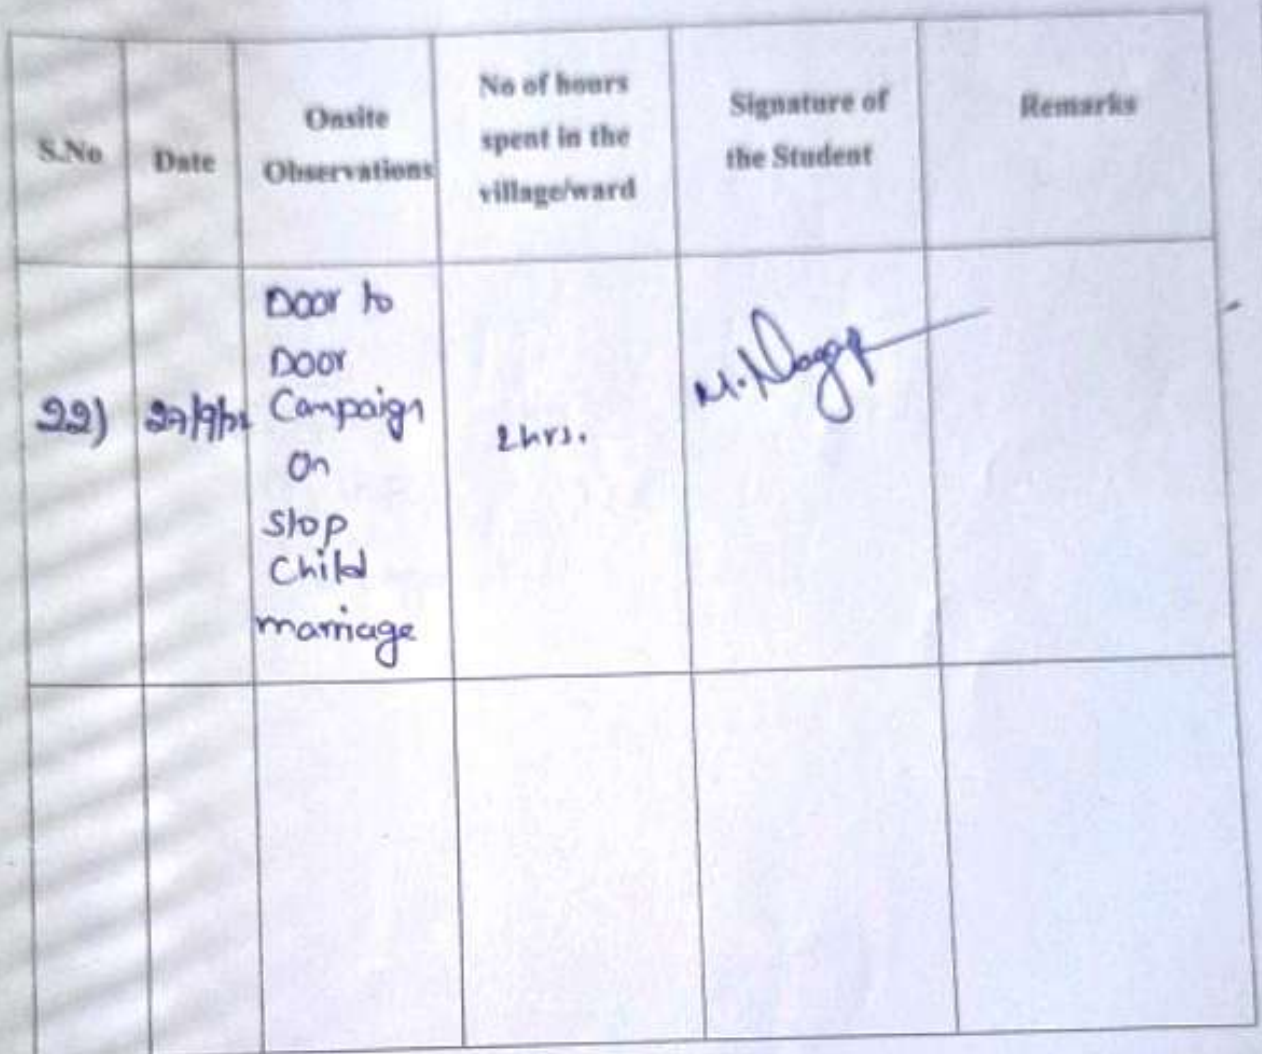 S.No
Date
Onsite
Observations
No of hours
spent in the
village/ward
Signature of
the Student
Remarks
22)
Door to
Door
Campaign
On
Stop
Child
marriage
2hrs.